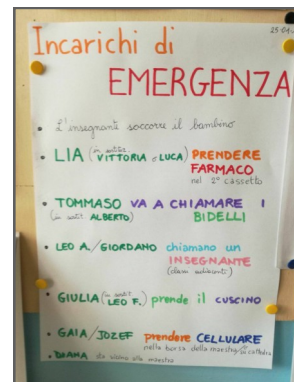 25-01
Incarichi di
EMERGENZA
• L'insegnante soccorre il bambino
• LIA (in sostit. VITTORIA o LUCA) PRENDERE
FARMACO
nel 2° cassetto
• TOMMASO VA A CHIAMARE I
(in sost. ALBERTO) BIDELLI
• LEO A./GIORDANO chiamano un
INSEGNANTE
(classi adiacenti)
• GIULIA (in sost. LEO F.) prende il CUSCINO
• GAIA/JOZEF prendere CELLULARE
nella borsa della maestra/su cattedra
• DIANA sta vicino alla maestra